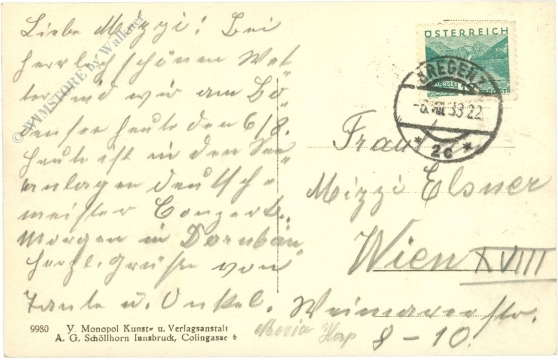 Liebe Mizzi! Bei
herrlich schönen Wet
ter sind wir am Bo
denser heute den 6/8.
heute ist in den See
anlagen deutsch
meister Conzert.
Morgen in Dornbirn
Herzl. Grüße von
Tante u. Onkel.
ÖSTERREICH
BREGENZ
-6.VIII.33.22
* 2c *
Frau
Mizzi Elsner
Wien XVIII
Weimarerstr.
8-10.
Maria
9980 V. Monopol Kunst= u. Verlagsanstalt
A. G. Schöllhorn Innsbruck, Colingasse 6
STORE by Walkner